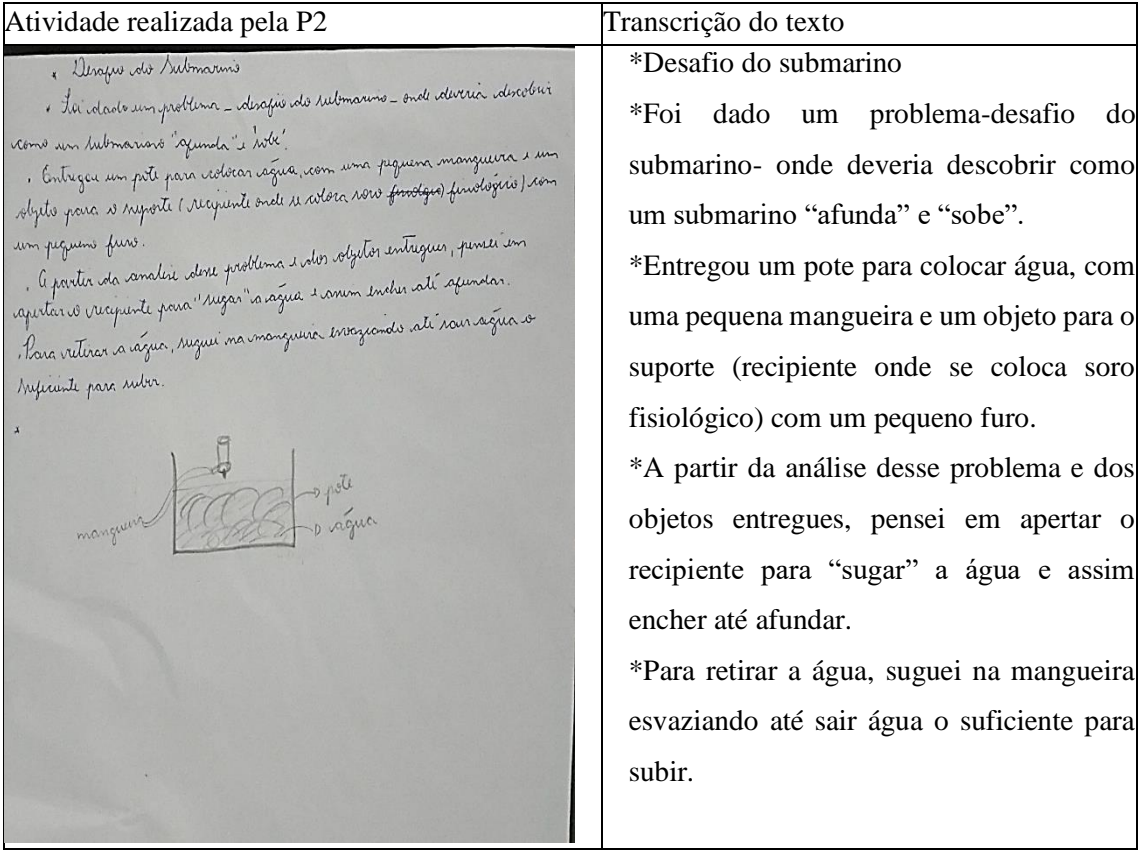 Atividade realizada pela P2
Transcrição do texto
* Desafio do Submarino
* Foi dado um problema - desafio do submarino - onde deveria descobrir
como um submarino "afunda" e "sobe".
. Entregou um pote para colocar água, com uma pequena mangueira e um
objeto para o suporte (recipiente onde se coloca soro fisiológico) com
um pequeno furo.
. A partir da analise desse problema e dos objetos entregues, pensei em
apertar o recipiente para "sugar" a água e assim encher até afundar.
. Para retirar a água, suguei na mangueira esvaziando até sair água o
suficiente para subir.
*
mangueira
pote
água
*Desafio do submarino
*Foi dado um problema-desafio do
submarino- onde deveria descobrir como
um submarino “afunda” e “sobe”.
*Entregou um pote para colocar água, com
uma pequena mangueira e um objeto para o
suporte (recipiente onde se coloca soro
fisiológico) com um pequeno furo.
*A partir da análise desse problema e dos
objetos entregues, pensei em apertar o
recipiente para “sugar” a água e assim
encher até afundar.
*Para retirar a água, suguei na mangueira
esvaziando até sair água o suficiente para
subir.